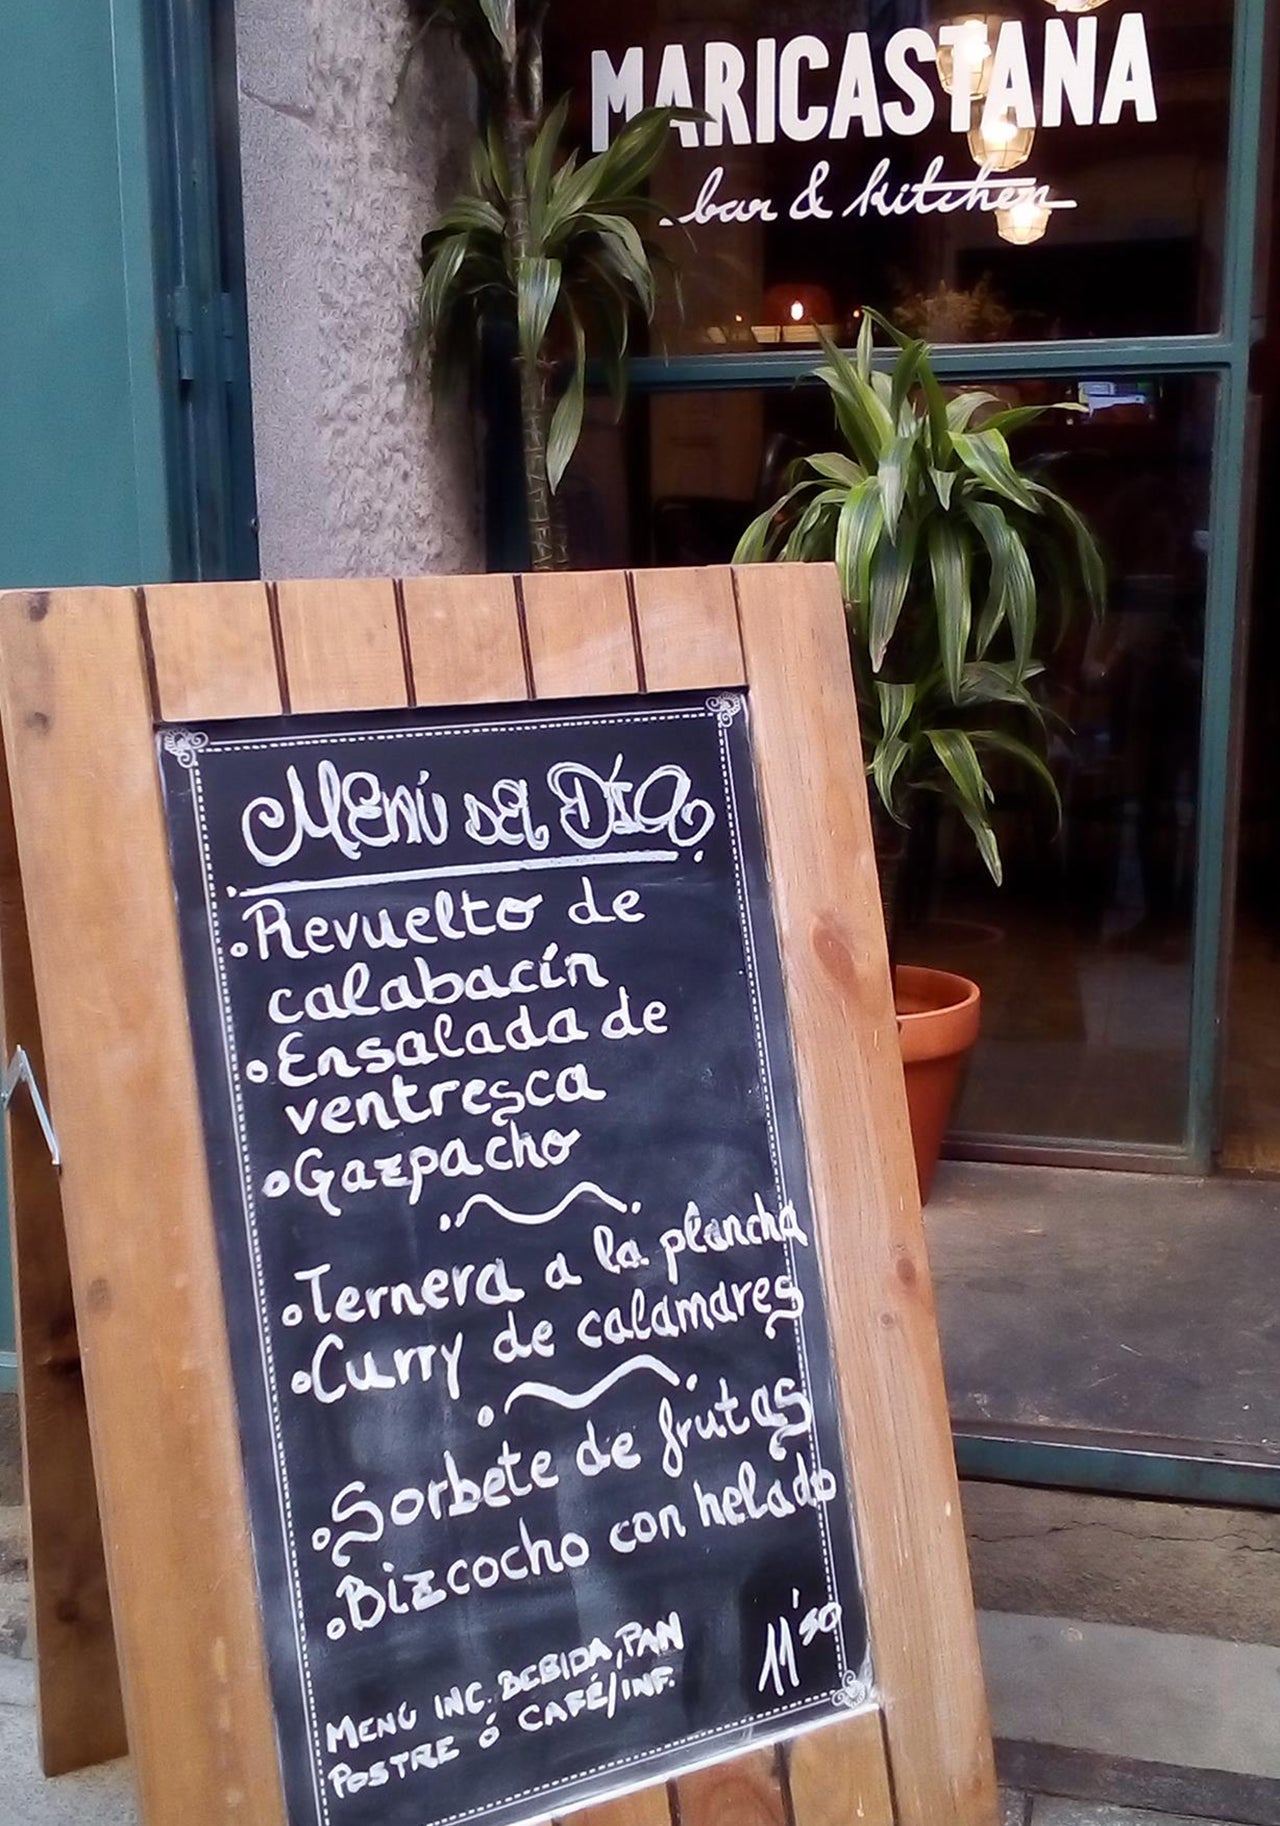 MARICASTANA
bar & kitchen
Menú del Día
Revuelto de
calabacín
Ensalada de
ventresca
Gazpacho
Ternera a la plancha
Curry de calamares
Sorbete de frutas
Bizcocho con helado
MENÚ INC. BEBIDA, PAN
POSTRE Ó CAFÉ/INF.
11'50